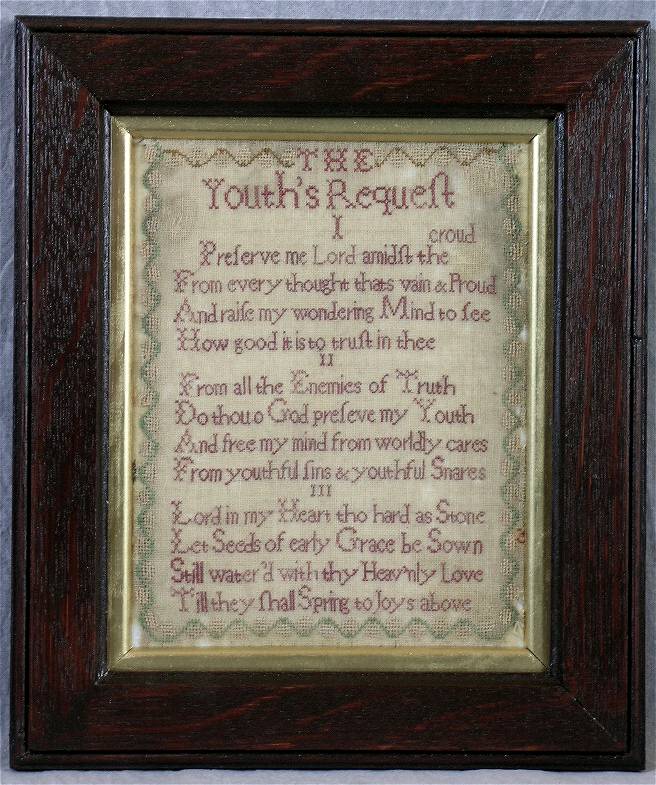 THE
Youth's Requeſt
I
croud
Preſerve me Lord amidſt the
From every thought thats vain & Proud
And raiſe my wondering Mind to ſee
How good it is to truſt in thee
II
From all the Enemies of Truth
Do thou o God preſeve my Youth
And free my mind from worldly cares
From youthful ſins & youthful Snares
III
Lord in my Heart tho hard as Stone
Let Seeds of early Grace be Sown
Still water'd with thy Heav'nly Love
Till they ſhall Spring to Joys above